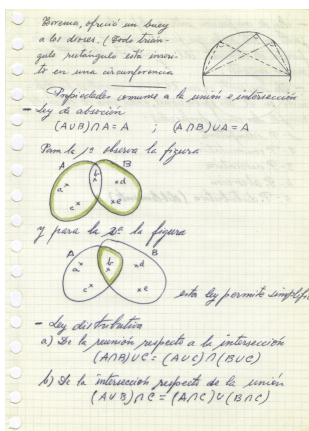 teorema, ofreció un buey
a los dioses. (Todo trián-
gulo rectángulo está inscri-
to en una circunferencia
Propiedades comunes a la unión e intersección
- Ley de absorción
(A∪B)∩A=A ; (A∩B)∪A=A
Para la 1ª observa la figura
A B
a b d
c e
y para la 2ª la figura
A B
a b d
c e
esta ley permite simplific
- Ley distributiva
a) De la reunión respecto a la intersección
(A∩B)∪C = (A∪C)∩(B∪C)
b) De la intersección respecto de la unión
(A∪B)∩C = (A∩C)∪(B∩C)